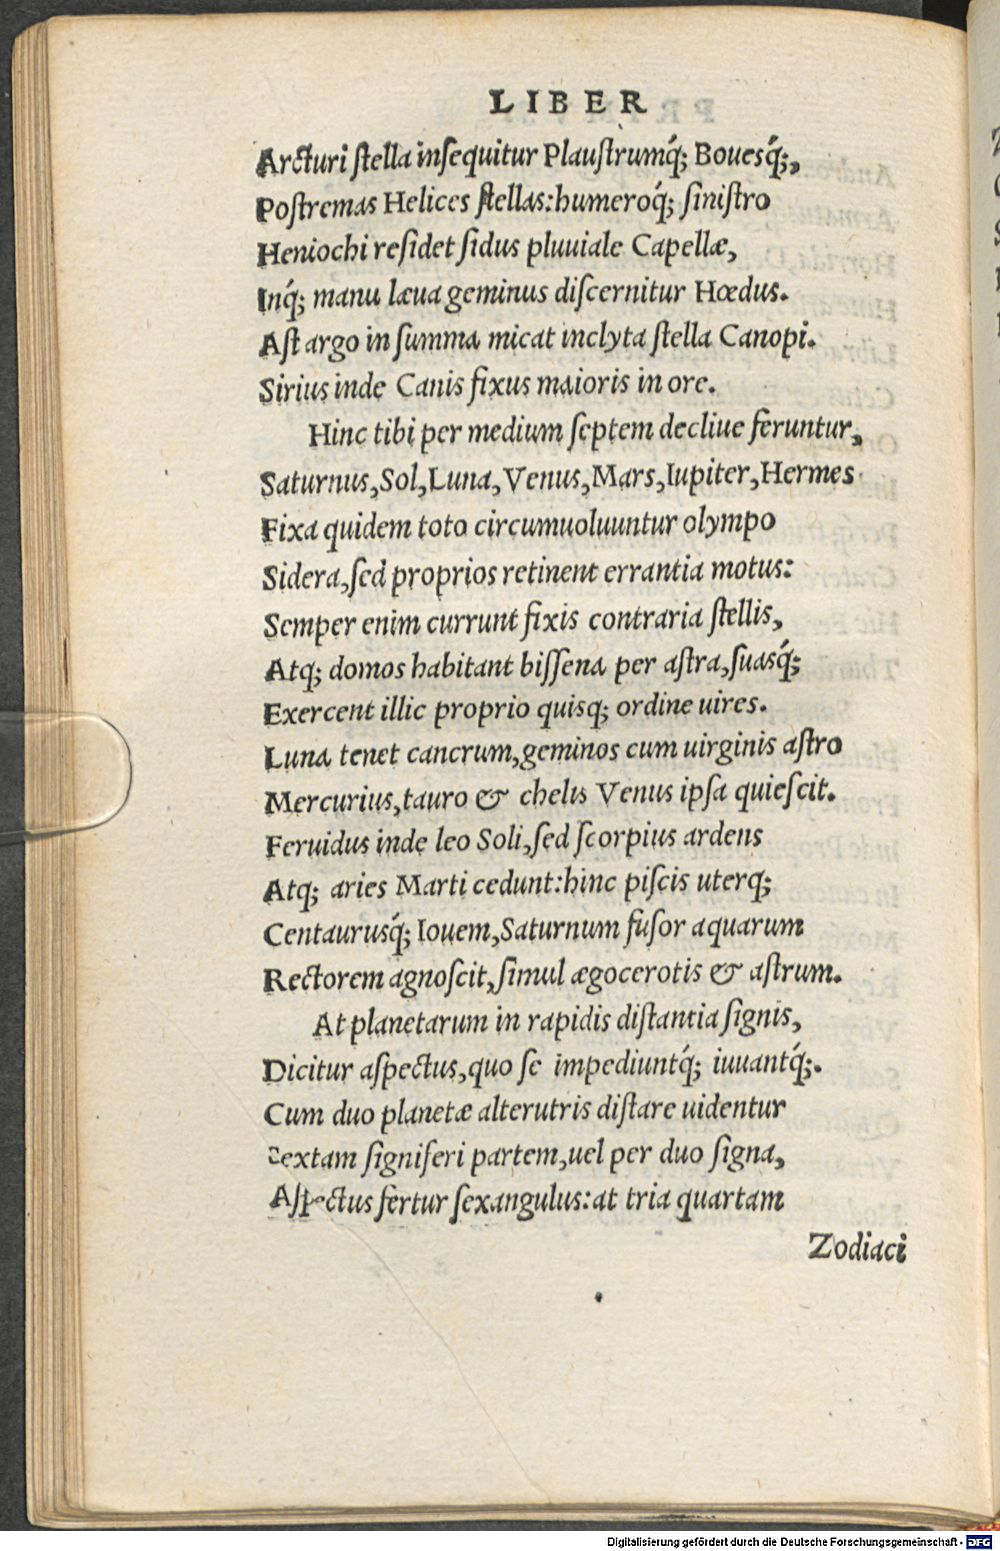 LIBER
Arcturi ſtella inſequitur Plauſtrumq́; Bouesq́;,
Poſtremas Helices ſtellas:humeroq́; ſiniſtro
Heniochi reſidet ſidus pluuiale Capellæ,
Inq́; manu læua geminus diſcernitur Hœdus.
Aſt argo in ſumma micat inclyta ſtella Canopi.
Sirius inde Canis fixus maioris in ore.
Hinc tibi per medium ſeptem decliue feruntur,
Saturnus,Sol,Luna,Venus,Mars,Iupiter,Hermes
Fixa quidem toto circumuoluuntur olympo
Sidera,ſed proprios retinent errantia motus:
Semper enim currunt fixis contraria ſtellis,
Atq; domos habitant biſſena per aſtra,ſuasq́;
Exercent illic proprio quisq; ordine uires.
Luna tenet cancrum,geminos cum uirginis aſtro
Mercurius,tauro & chelis Venus ipſa quieſcit.
Feruidus inde leo Soli,ſed ſcorpius ardens
Atq; aries Marti cedunt:hinc piſcis uterq;
Centaurusq́; Iouem,Saturnum fuſor aquarum
Rectorem agnoſcit,ſimul ægocerotis & aſtrum.
At planetarum in rapidis diſtantia ſignis,
Dicitur aſpectus,quo ſe impediuntq́; iuuantq́;.
Cum duo planetæ alterutris diſtare uidentur
Sextam ſigniferi partem,uel per duo ſigna,
Aſpectus fertur ſexangulus:at tria quartam
Zodiaci
Digitalisierung gefördert durch die Deutsche Forschungsgemeinschaft - DFG